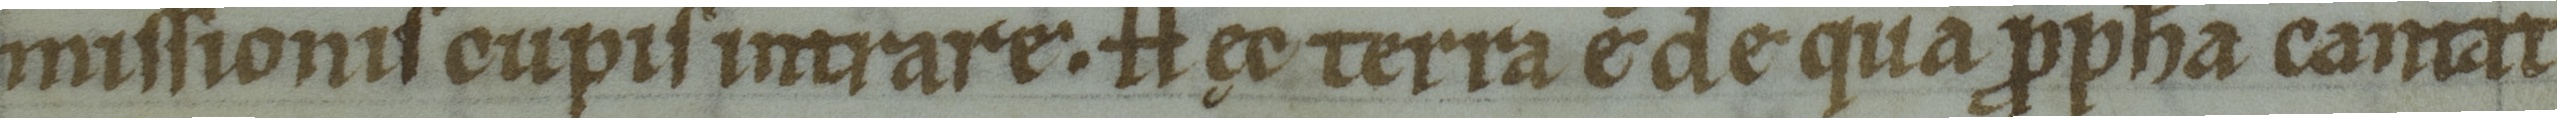 missionis cupis intrare. Hęc terra ē de qua ꝓpha cantat